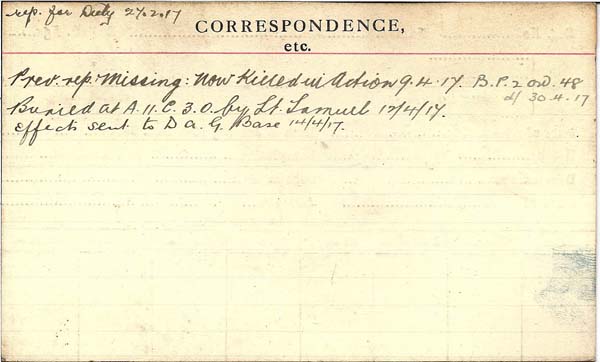 rep. for Duty 27.2.17
CORRESPONDENCE,
etc.
Prev. rep. Missing: Now Killed in Action 9.4.17. B.P. 2 ord. 48
d/ 30.4.17
Buried at A.11.C.3.0. by Lt. Samuel 12/4/17.
effects sent to D.A.G. Base 14/4/17.